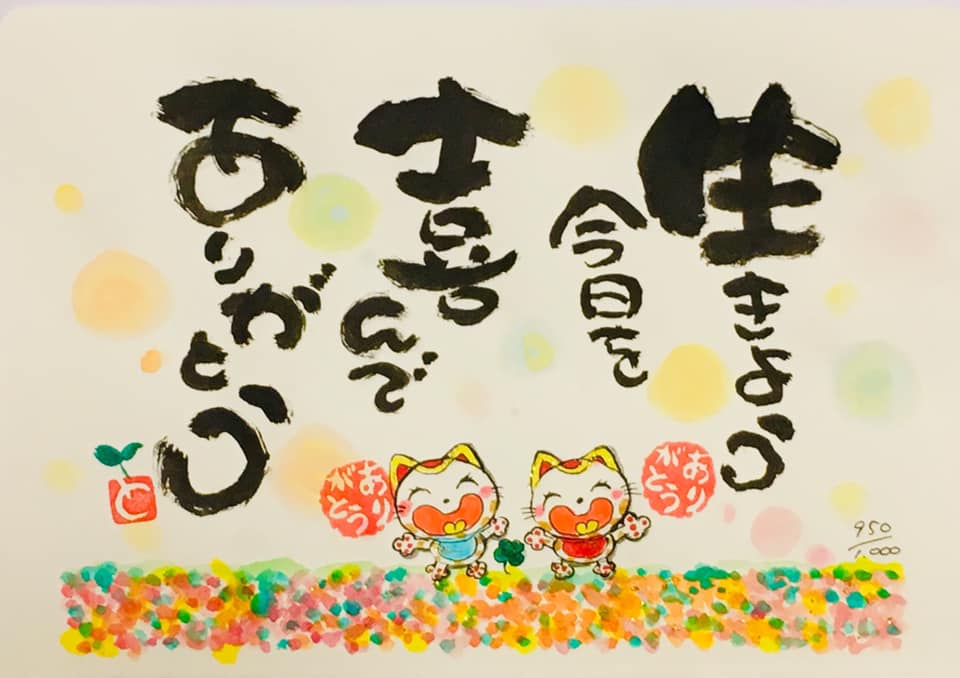 生きよう
今日を
喜んで
ありがとう
ありがとう
ありがとう
と
950/1.000